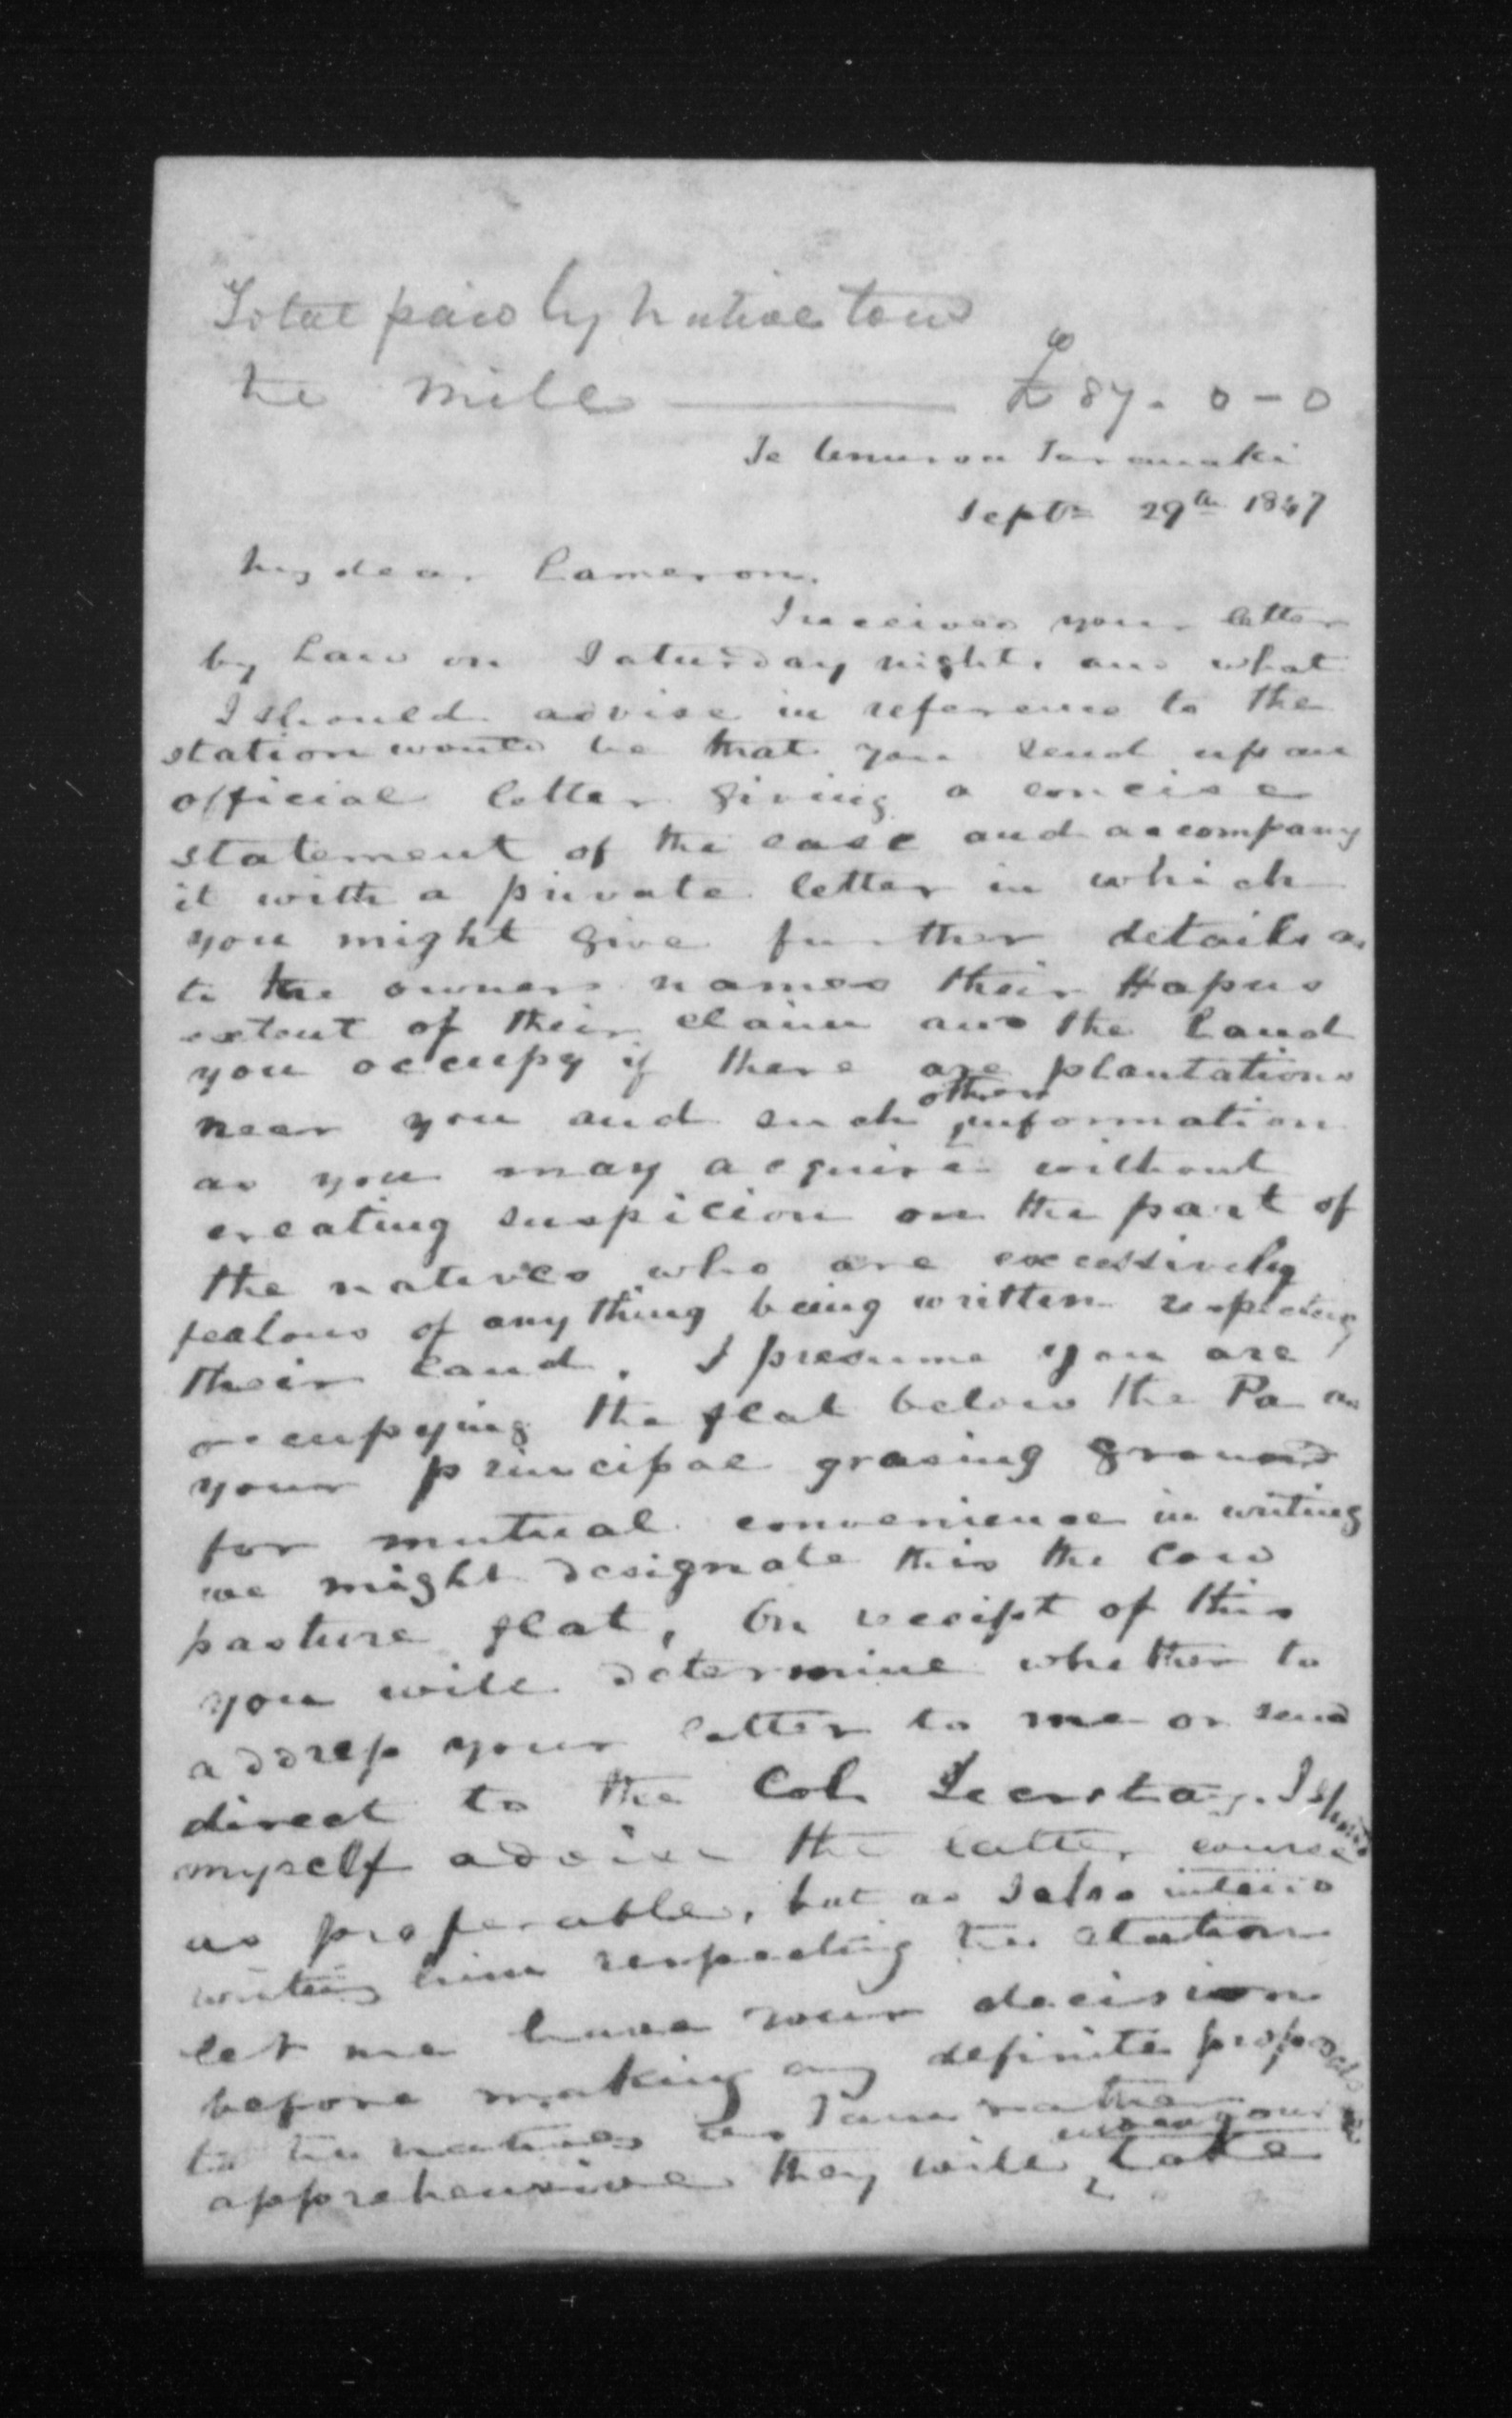 Total paid by natives town
the mill ——— £87. 0 - 0
Te Taranaki
Septr 29th 1847
My dear Cameron,
I received your letter
by Law on Saturday night, and what
I should advise in reference to the
station would be that you send up an
official letter giving a concise
statement of the case and accompany
it with a private letter in which
you might give further details as
to the owners names their Hapus
extent of their claim and the land
you occupy if there are plantations
near you and such other information
as you may acquire without
creating suspicion on the part of
the natives who are excessively
jealous of any thing being written respecting
their land. I presume you are
occupying the flat below the Pa as
your principal grasing ground
for mutual convenience in writing
we might designate this the cow
pasture flat, On receipt of this
you will determine whether to
address your letter to me or send
direct to the Col. Secretary. I should
myself advise the latter course
as preferable, but as I also intend
writing him respecting the station
let me have your decision
before making any definite proposals
to the natives as I am rather
apprehensive they will take